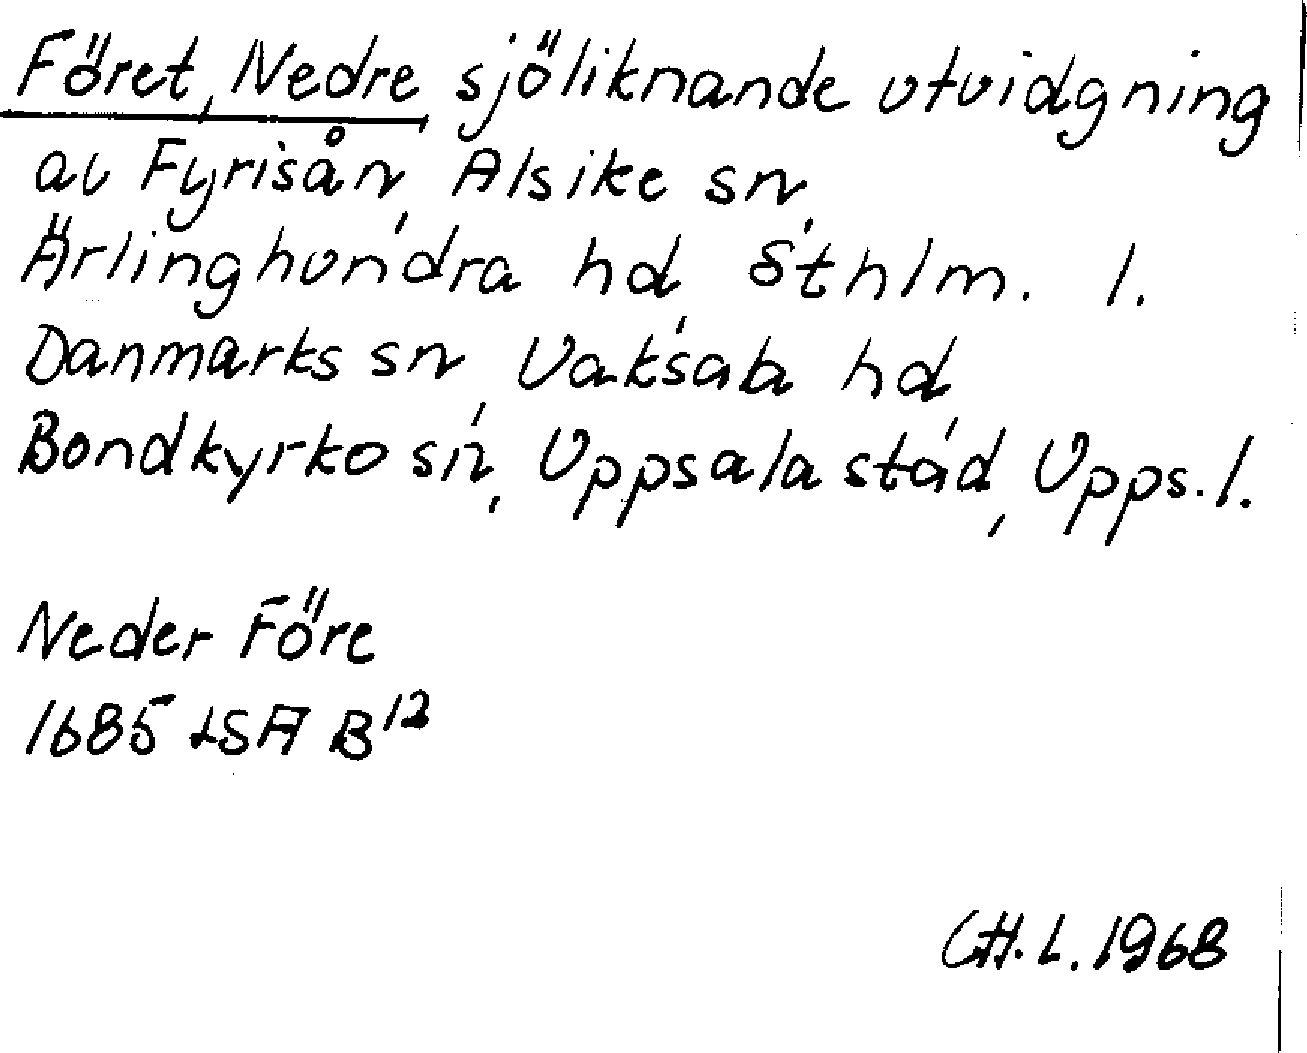 Föret, Nedre sjöliknande utvidgning
av Fyrisån, Alsike sn,
Ärlinghundra hd, Sthlm. l.
Danmarks sn, Vaksala hd,
Bondkyrko sn, Uppsala stad, Upps. l.
Neder Före
1685 LSA B12
CH.L. 1968